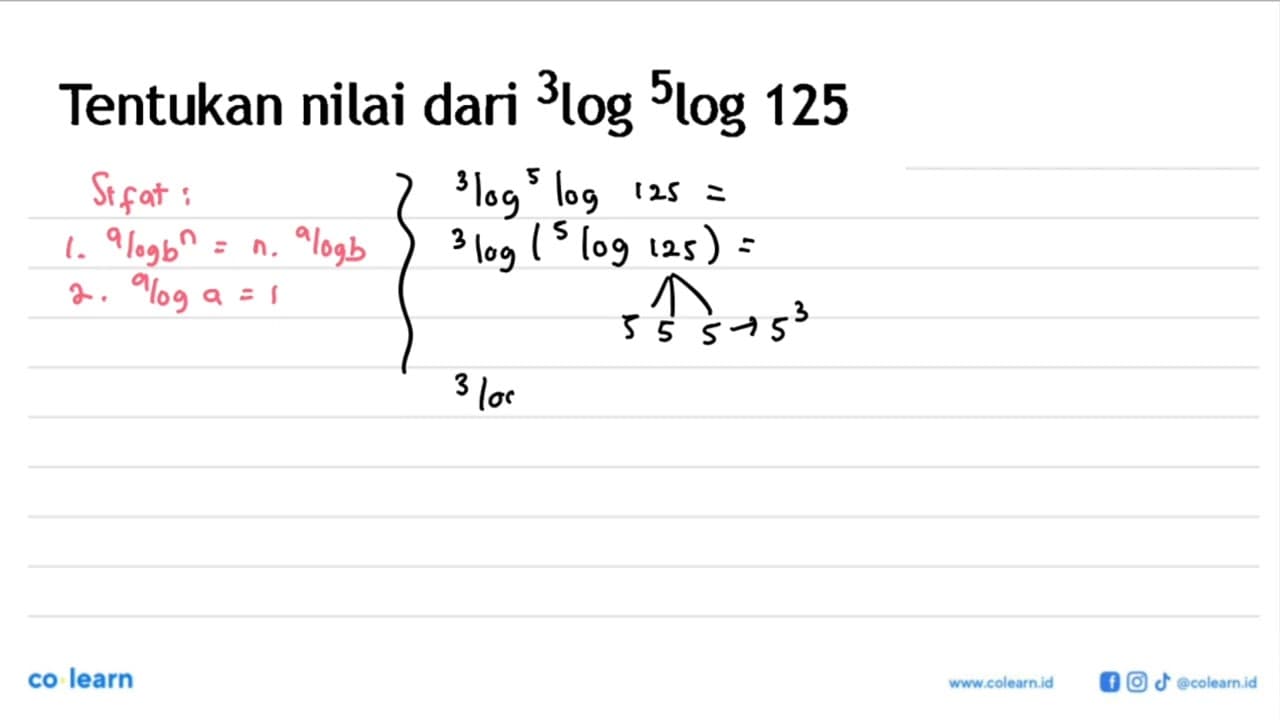 Tentukan nilai dari ³log ⁵log 125
Sifat :
1. ᵃlog bⁿ = n. ᵃlog b
2. ᵃlog a = 1
³log ⁵log 125 =
³log (⁵log 125) =
5 5 5 → 5³
³lo
co learn
www.colearn.id
@colearn.id